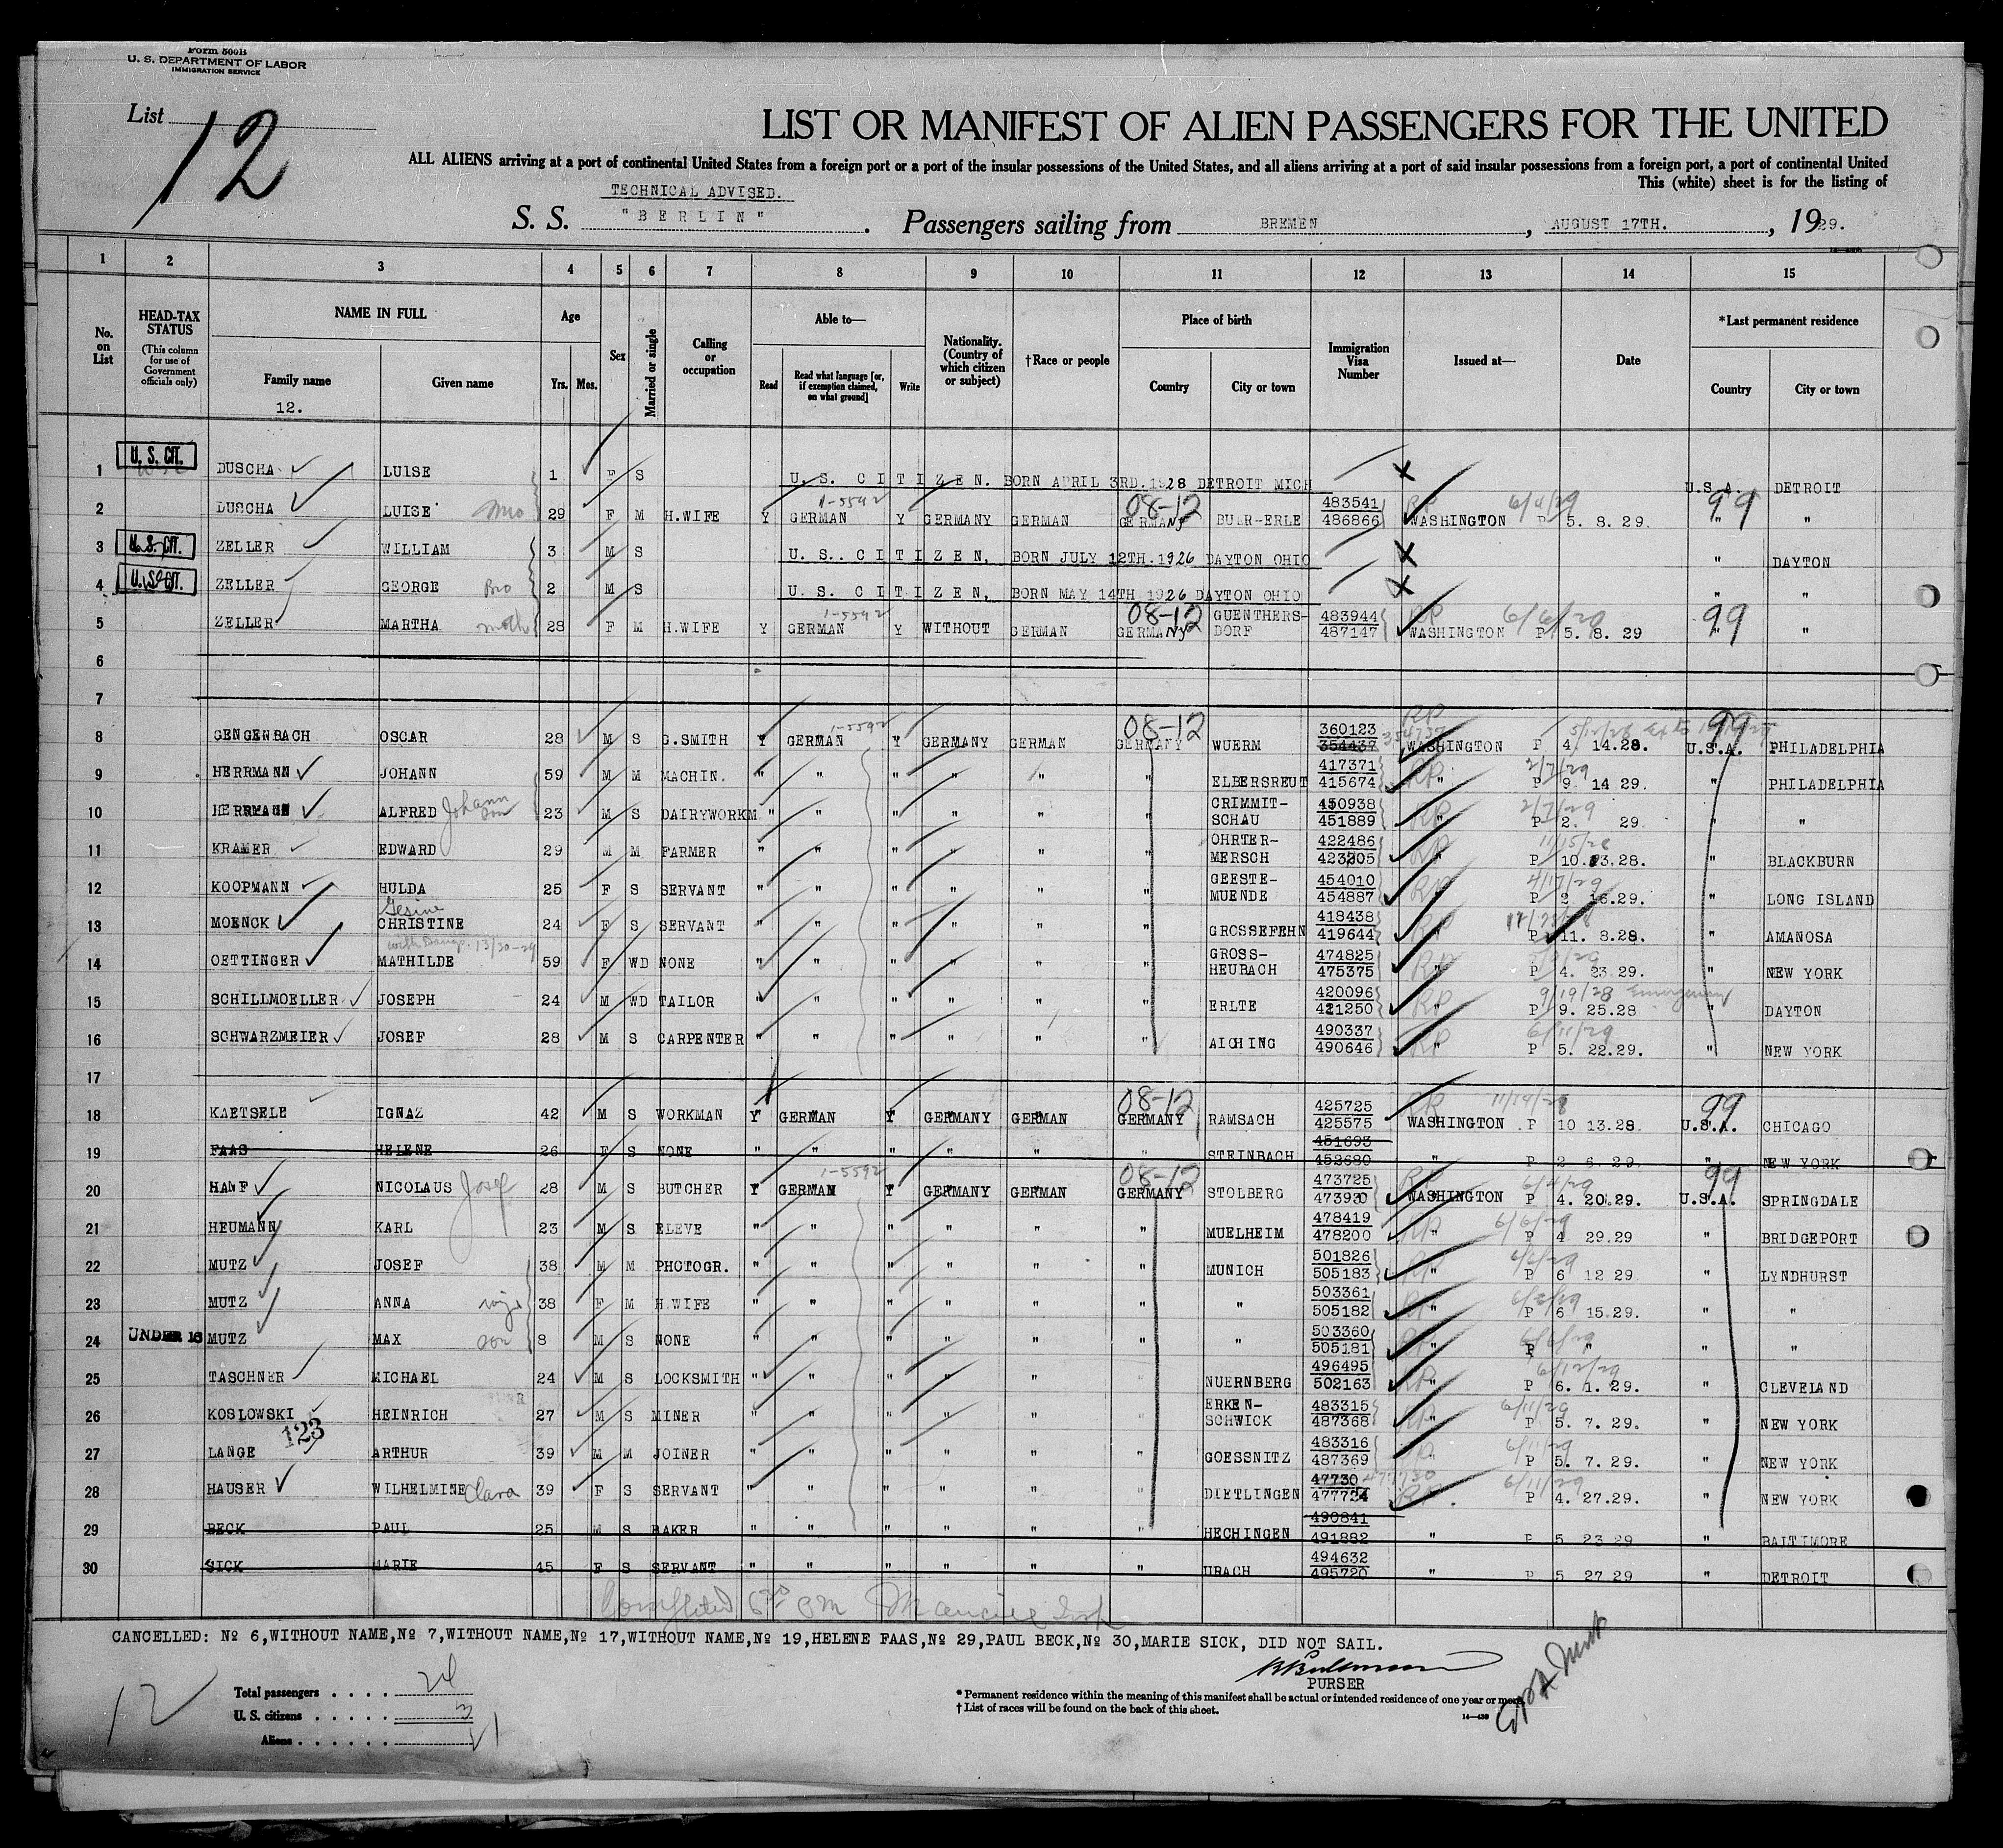 Form 500B
U. S. DEPARTMENT OF LABOR
IMMIGRATION SERVICE
List 12
LIST OR MANIFEST OF ALIEN PASSENGERS FOR THE UNITED
ALL ALIENS arriving at a port of continental United States from a foreign port or a port of the insular possessions of the United States, and all aliens arriving at a port of said insular possessions from a foreign port, a port of continental United
This (white) sheet is for the listing of
TECHNICAL ADVISED.
S. S. "BERLIN". Passengers sailing from BREMEN, AUGUST 17TH., 1929.
1 2 3 4 5 6 7 8 9 10 11 12 13 14 15
No. on List
HEAD-TAX STATUS (This column for use of Government officials only)
NAME IN FULL
Family name 12.
Given name
Age Yrs. Mos.
Sex
Married or single
Calling or occupation
Able to—
Read
Read what language [or, if exemption claimed, on what ground]
Write
Nationality. (Country of which citizen or subject)
†Race or people
Place of birth
Country
City or town
Immigration Visa Number
Issued at—
Date
*Last permanent residence
Country
City or town
1 U. S. CIT. DUSCHA LUISE 1 F S U. S. CITIZEN. BORN APRIL 3RD. 1928 DETROIT MICH U.S.A. DETROIT
2 DUSCHA LUISE 29 F M H.WIFE Y GERMAN 1-5592 Y GERMANY GERMAN 08-12 GERMANY BUER-ERLE 483541 486866 RP WASHINGTON P 5. 8. 29. 99 " "
3 U. S. CIT. ZELLER WILLIAM 3 M S U. S. CITIZEN, BORN JULY 12TH. 1926 DAYTON OHIO " DAYTON
4 U. S. CIT. ZELLER GEORGE Bro 2 M S U. S. CITIZEN, BORN MAY 14TH 1926 DAYTON OHIO " "
5 ZELLER MARTHA moth 28 F M H.WIFE Y GERMAN 1-5592 Y WITHOUT GERMAN 08-12 GERMANY GUENTHERS-DORF 483944 487147 RP WASHINGTON 6/6/29 P 5. 8. 29 99 " "
6
7
8 GENGENBACH OSCAR 28 M S G.SMITH Y GERMAN 1-5592 Y GERMANY GERMAN 08-12 GERMANY WUERM 360123 354437 354737 RP WASHINGTON P 4. 14.28. 99 U.S.A. PHILADELPHIA
9 HERRMANN JOHANN 59 M M MACHIN. " " " " " " ELBERSREUT 417371 415674 RP " 2/7/29 P 9. 14 29. " PHILADELPHIA
10 HERRMANN ALFRED Johann son 23 M S DAIRYWORKM " " " " " " CRIMMIT-SCHAU 450938 451889 RP " 2/7/29 P 2. 29. " "
11 KRAMER EDWARD 29 M M FARMER " " " " " " OHRTER-MERSCH 422486 423205 RP " 11/15/28 P 10.23.28. " BLACKBURN
12 KOOPMANN HULDA 25 F S SERVANT " " " " " " GEESTE-MUENDE 454010 454887 RP " 4/17/29 P 2 16.29. " LONG ISLAND
13 MOENCK Gesine CHRISTINE 24 F S SERVANT " " " " " " GROSSEFEHN 418438 419644 RP " P 11. 8.28. " AMANOSA
14 OETTINGER MATHILDE 59 F WD NONE " " " " " " GROSS-HEUBACH 474825 475375 RP " P 4. 23.29. " NEW YORK
15 SCHILLMOELLER JOSEPH 24 M WD TAILOR " " " " " " ERLTE 420096 421250 RP " 9/19/28 Emergency P 9. 25.28 " DAYTON
16 SCHWARZMEIER JOSEF 28 M S CARPENTER " " " " " " AICHING 490337 490646 RP " 6/11/29 P 5. 22.29. " NEW YORK
17
18 KAETSELE IGNAZ 42 M S WORKMAN Y GERMAN Y GERMANY GERMAN 08-12 GERMANY RAMSACH 425725 425575 RP WASHINGTON 11/19/28 P 10 13.28. 99 U.S.A. CHICAGO
19 FAAS HELENE 26 F S NONE " " " " " " STEINBACH 451693 452680 " P 2 6. 29. " NEW YORK
20 HANF NICOLAUS Josef 28 M S BUTCHER Y GERMAN 1-5592 Y GERMANY GERMAN 08-12 GERMANY STOLBERG 473725 473930 RP WASHINGTON 6/4/29 P 4. 20.29. 99 U.S.A. SPRINGDALE
21 HEUMANN KARL 23 M S ELEVE " " " " " " MUELHEIM 478419 478200 RP " 6/6/29 P 4 29.29 " BRIDGEPORT
22 MUTZ JOSEF 38 M M PHOTOGR. " " " " " " MUNICH 501826 505183 RP " P 6 12 29 " LYNDHURST
23 MUTZ ANNA wife 38 F M H.WIFE " " " " " " " 503361 505182 RP " P 6 15.29. " "
24 UNDER 16 MUTZ MAX son 8 M S NONE " " " " " " " 503360 505181 RP " P " " "
25 TASCHNER MICHAEL 24 M S LOCKSMITH " " " " " " NUERNBERG 496495 502163 RP " 6/12/29 P 6. 1. 29. " CLEVELAND
26 KOSLOWSKI HEINRICH 27 M S MINER " " " " " " ERKEN-SCHWICK 483315 487368 RP " 6/11/29 P 5. 7. 29. " NEW YORK
123
27 LANGE ARTHUR 39 M M JOINER " " " " " " GOESSNITZ 483316 487369 RP " 6/11/29 P 5. 7. 29. " NEW YORK
28 HAUSER WILHELMINE Clara 39 F S SERVANT " " " " " " DIETLINGEN 47730 477730 477724 RP 6/11/29 P 4. 27.29. " NEW YORK
29 BECK PAUL 25 M S BAKER " " " " " " HECHINGEN 490841 491882 " P 5 23 29 " BALTIMORE
30 SICK MARIE 45 F S SERVANT " " " " " " URACH 494632 495720 " P 5 27 29 " DETROIT
Completed
CANCELLED: № 6,WITHOUT NAME,№ 7,WITHOUT NAME,№ 17,WITHOUT NAME,№ 19,HELENE FAAS,№ 29,PAUL BECK,№ 30,MARIE SICK, DID NOT SAIL.
PURSER
12
Total passengers . . . . 24
U. S. citizens . . . . . 3
Aliens . . . . . . 21
* Permanent residence within the meaning of this manifest shall be actual or intended residence of one year or more.
† List of races will be found on the back of this sheet.